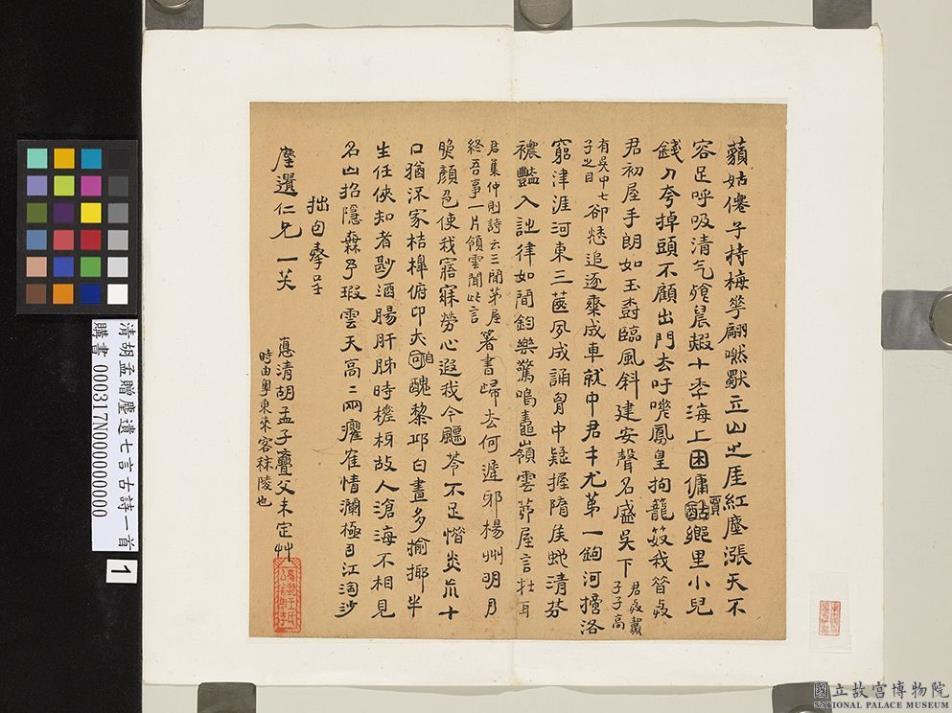 藐姑僊子持梅萼翩嘫獨立山之厓紅塵漲天不
容足呼吸清气飱晨霞十年海上困傭酤賈鄉里小兒
錢刀夸掉頭不顧出門去吁嗟鳳皇拘籠笯我昔
君初屋手朗如玉臨風斜建安聲名盛吳下
子子高
有吳中七
子之目
卻愁追逐龜成車就中君才尤第一鉤河擿洛
窮津涯河東三篋夙成誦匈中疑握隋矦蛇清芬
穠豔入詩律如聞鈞樂驚鳴鼃嶺雲茆屋言在耳
君集仲則詩云三間茅屋
終吾事一片領雲聞此言
箸書歸去何遲邪楊州明月
艷顏色使我寤寐勞心遐我今飄苓不足惜炎
口猶沫家桔槔俯卬大自醜黎邛白晝多揄揶半
生任俠知者尟酒腸肝肺時槎枒故人滄海不相見
名山招隱瑕雲天高二兩瓘崔情瀾極目江淘沙
拙句奉呈
塵遺仁兄一笑
應清胡孟子亹父未定艸
時由粵東來客秣陵也
清胡孟贈塵遺七言古詩一首
購書 000317N000000000
1
國立故宮博物院
NATIONAL PALACE MUSEUM